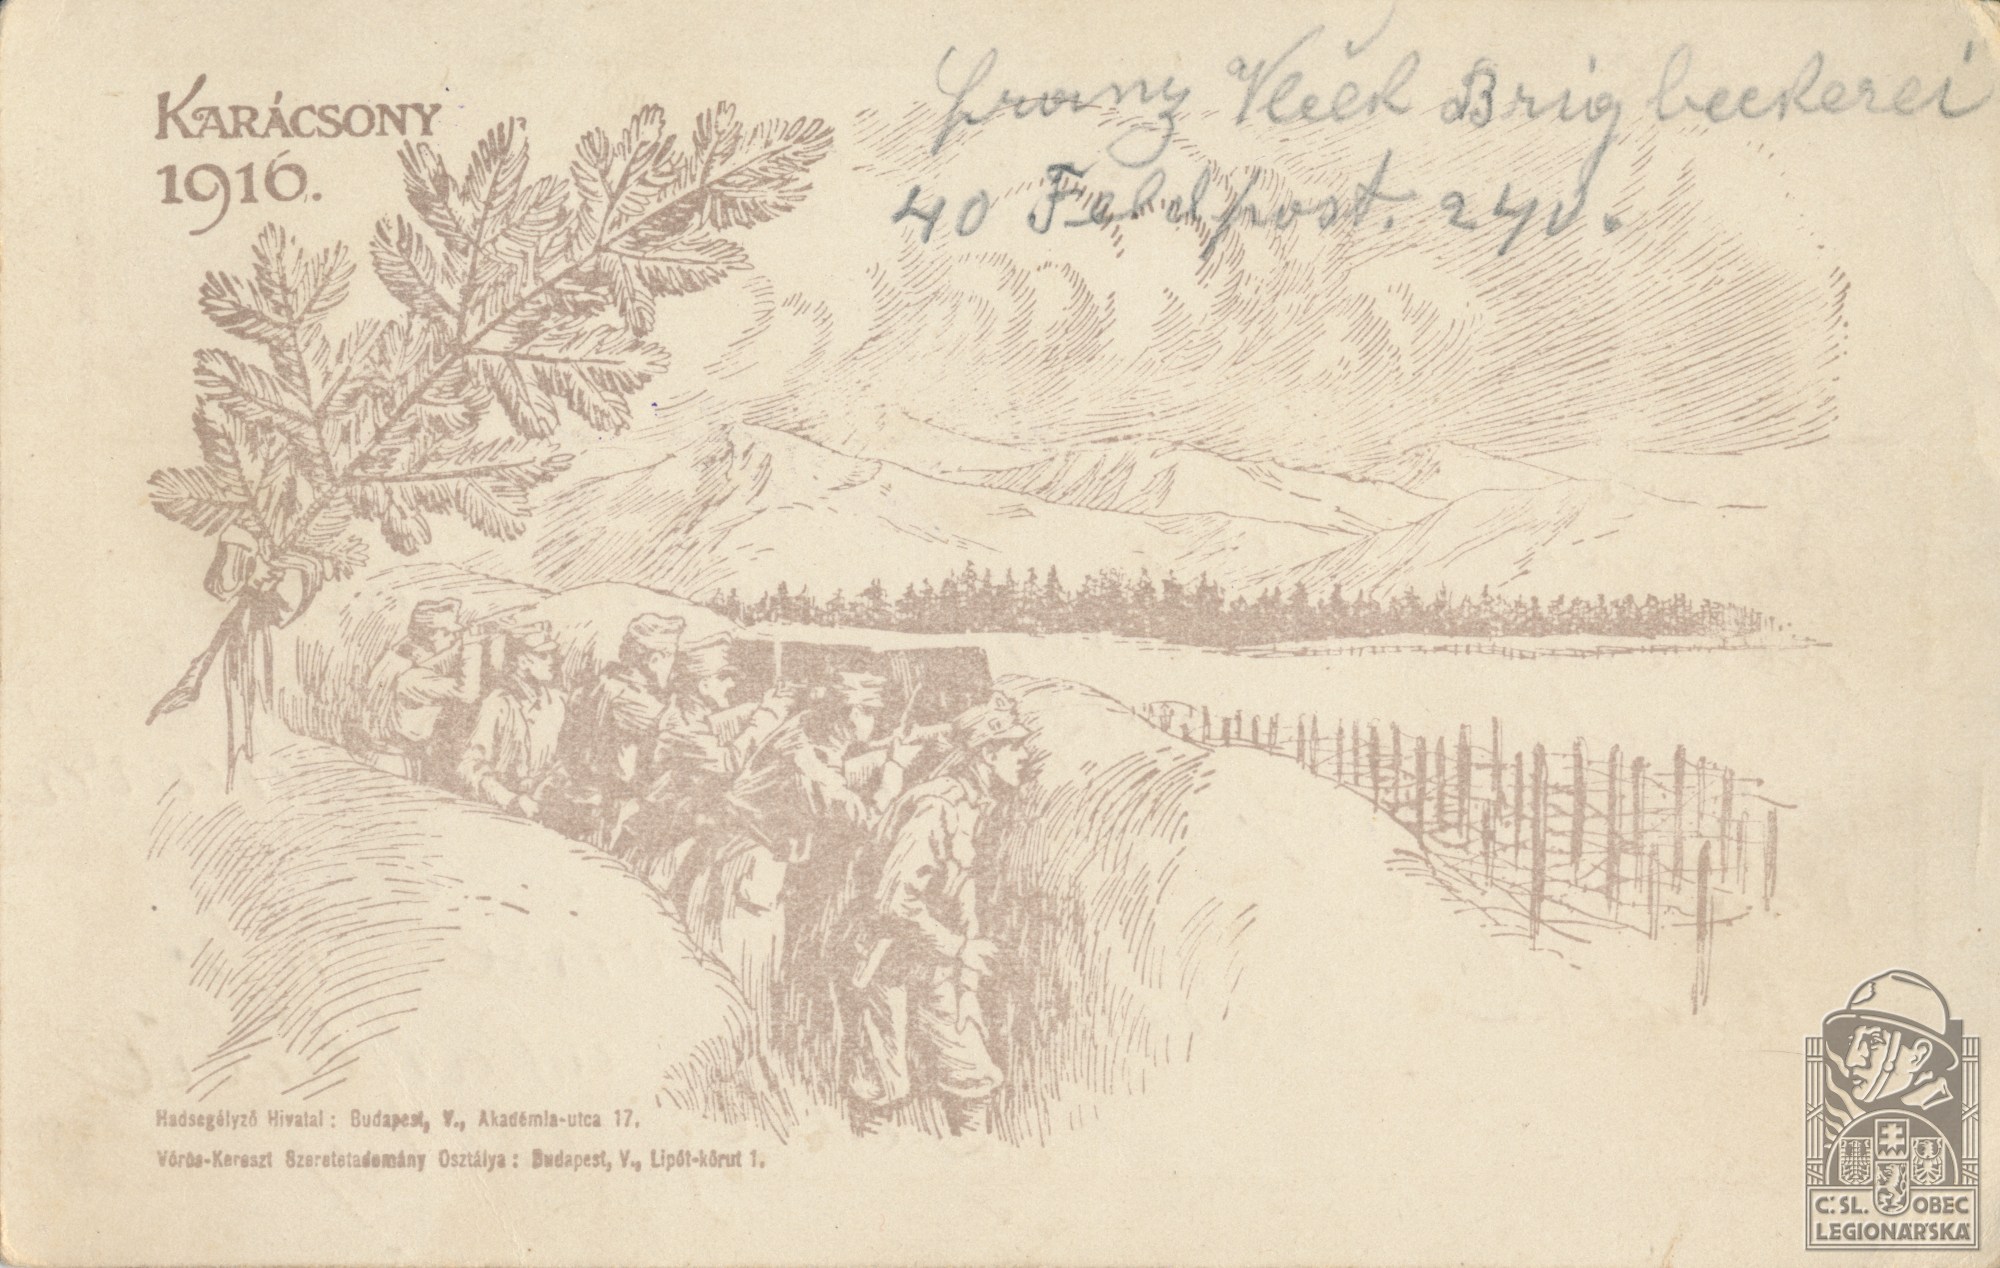 KARÁCSONY
1916.
Franz Vlček Brig beckerei
40 Feldpost. 240.
Hadsegélyző Hivatal : Budapest, V., Akadémia-utca 17.
Vörös-Kereszt Szeretetadomány Osztálya : Budapest, V., Lipót-körut 1.
Č. SL. OBEC
LEGIONÁŘSKÁ